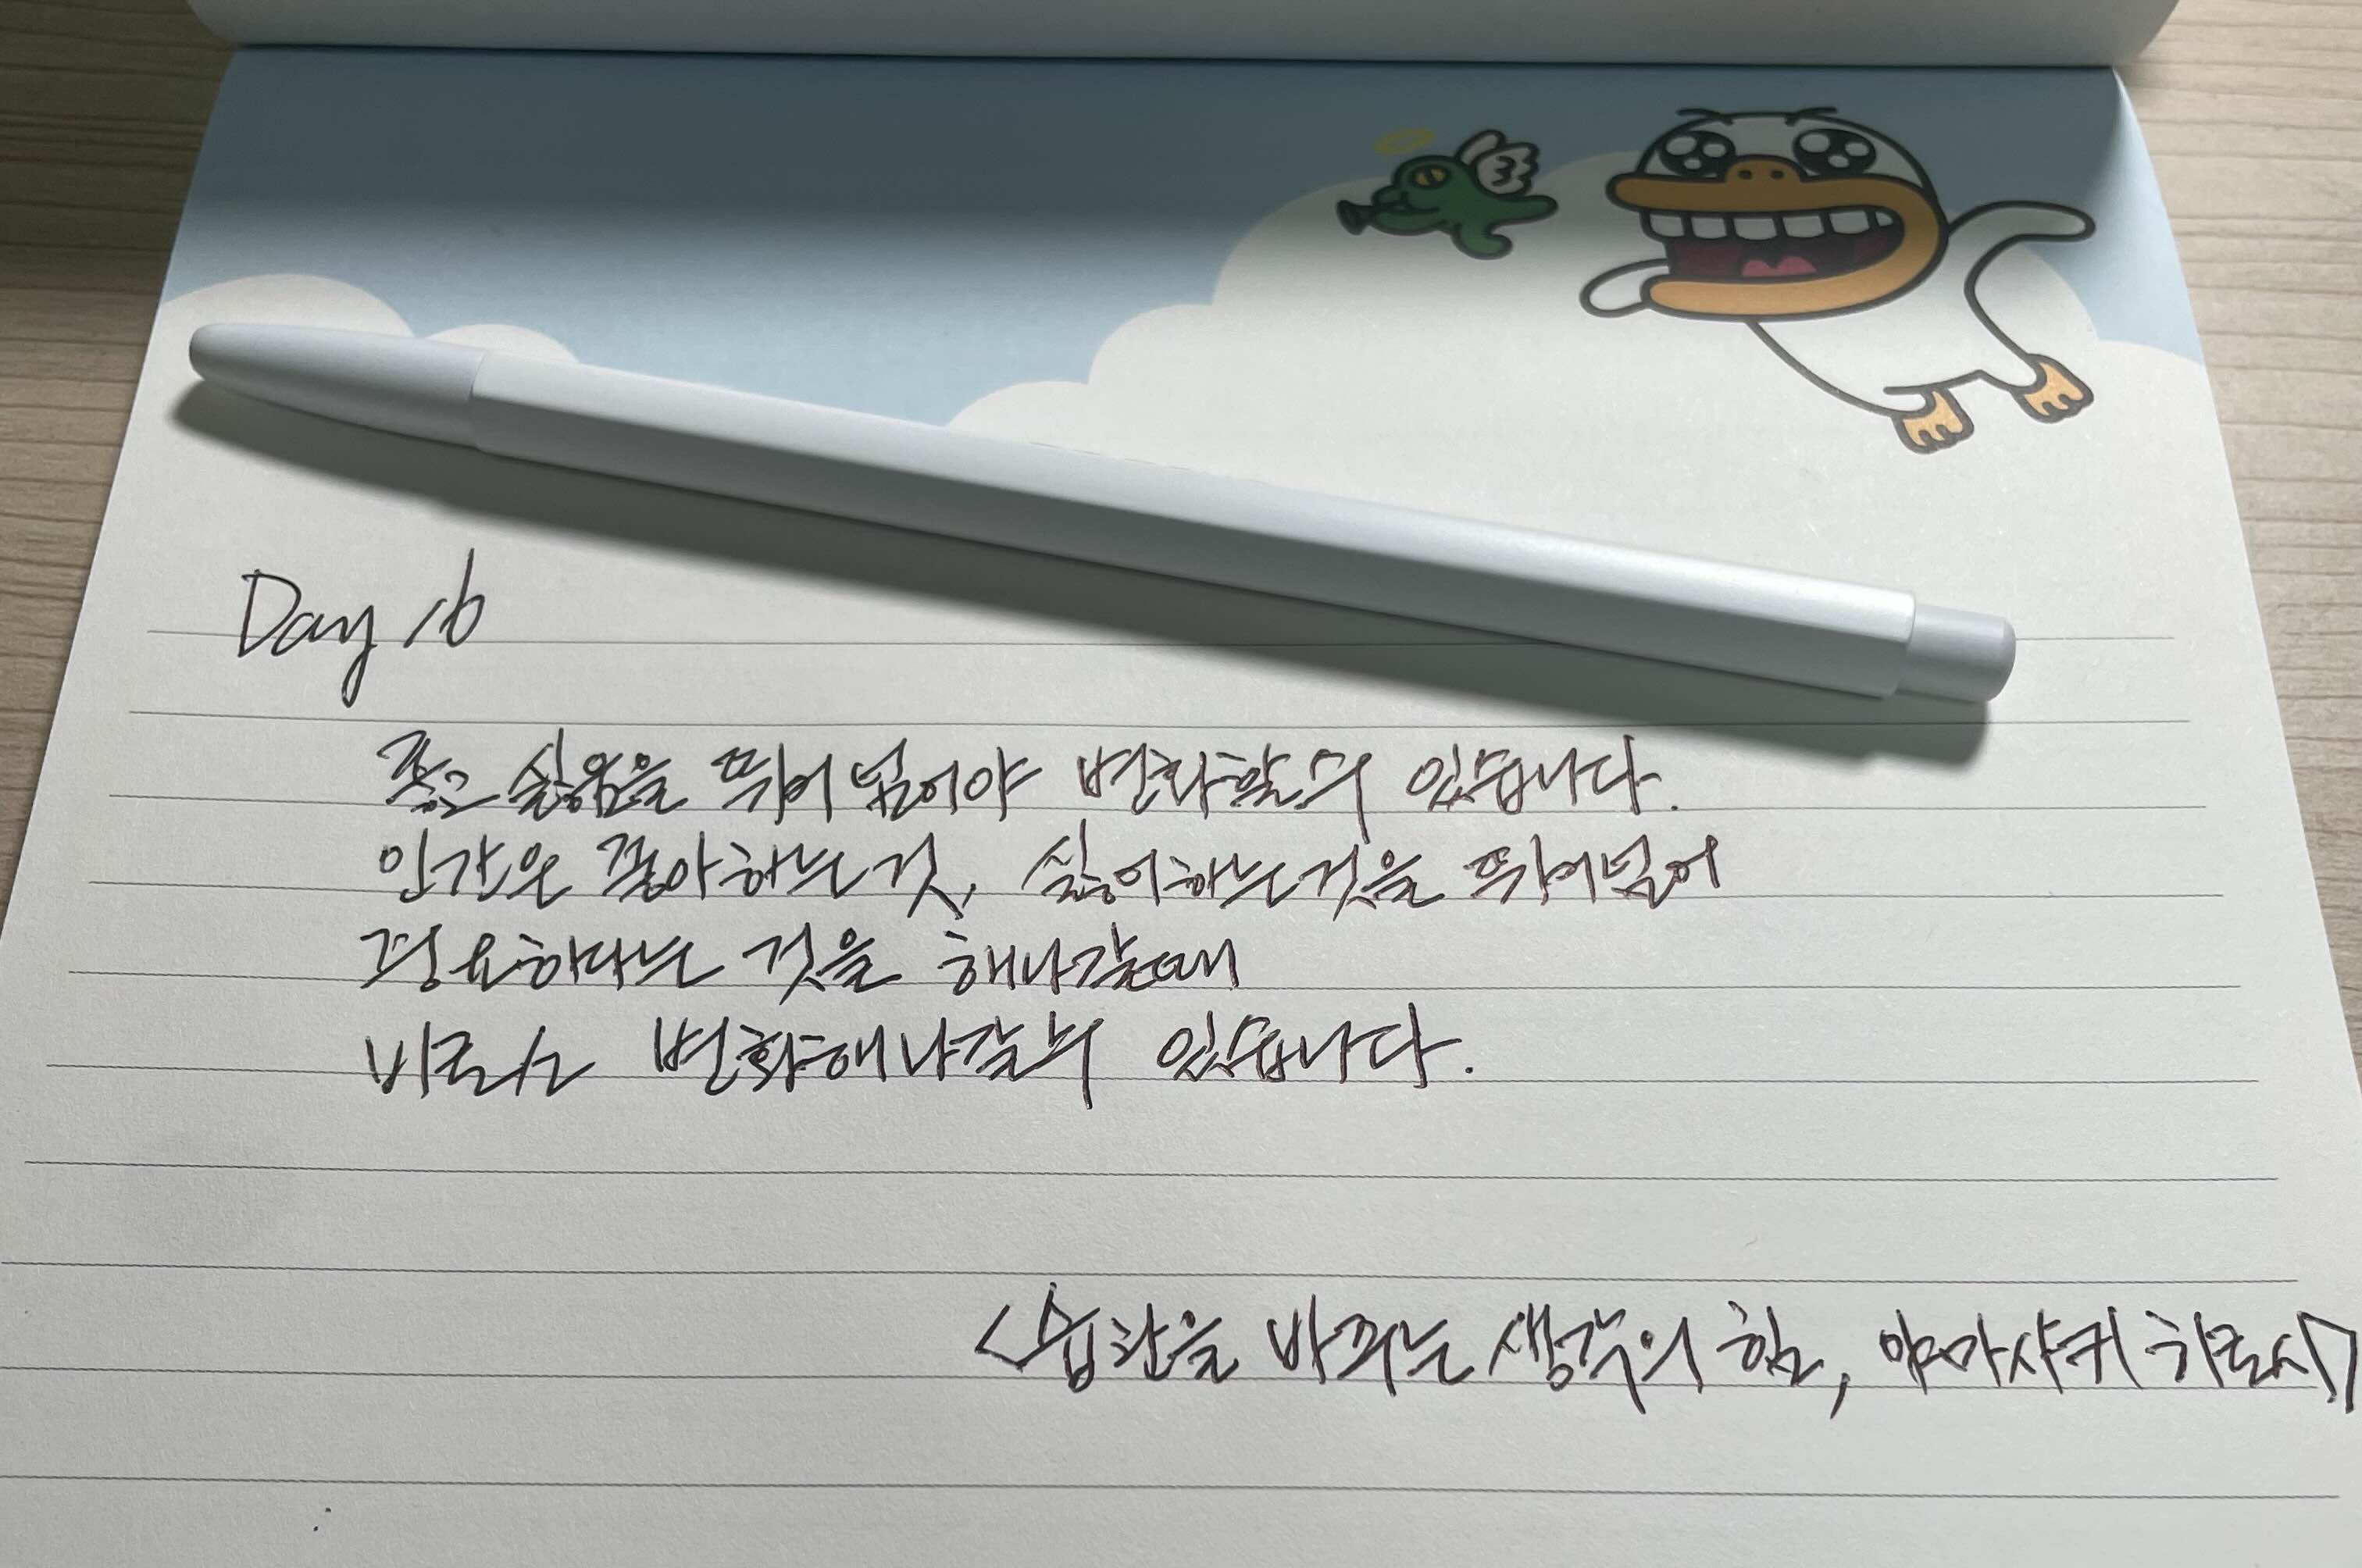 Day 16
좋고 싫음을 뛰어 넘어야 변화할 수 있습니다.
인간은 좋아하는 것, 싫어하는 것을 뛰어넘어
필요하다는 것을 해나갈때
비로소 변화해 나갈 수 있습니다.
<습관을 바꾸는 생각의 힘, 야마사키 히로시>